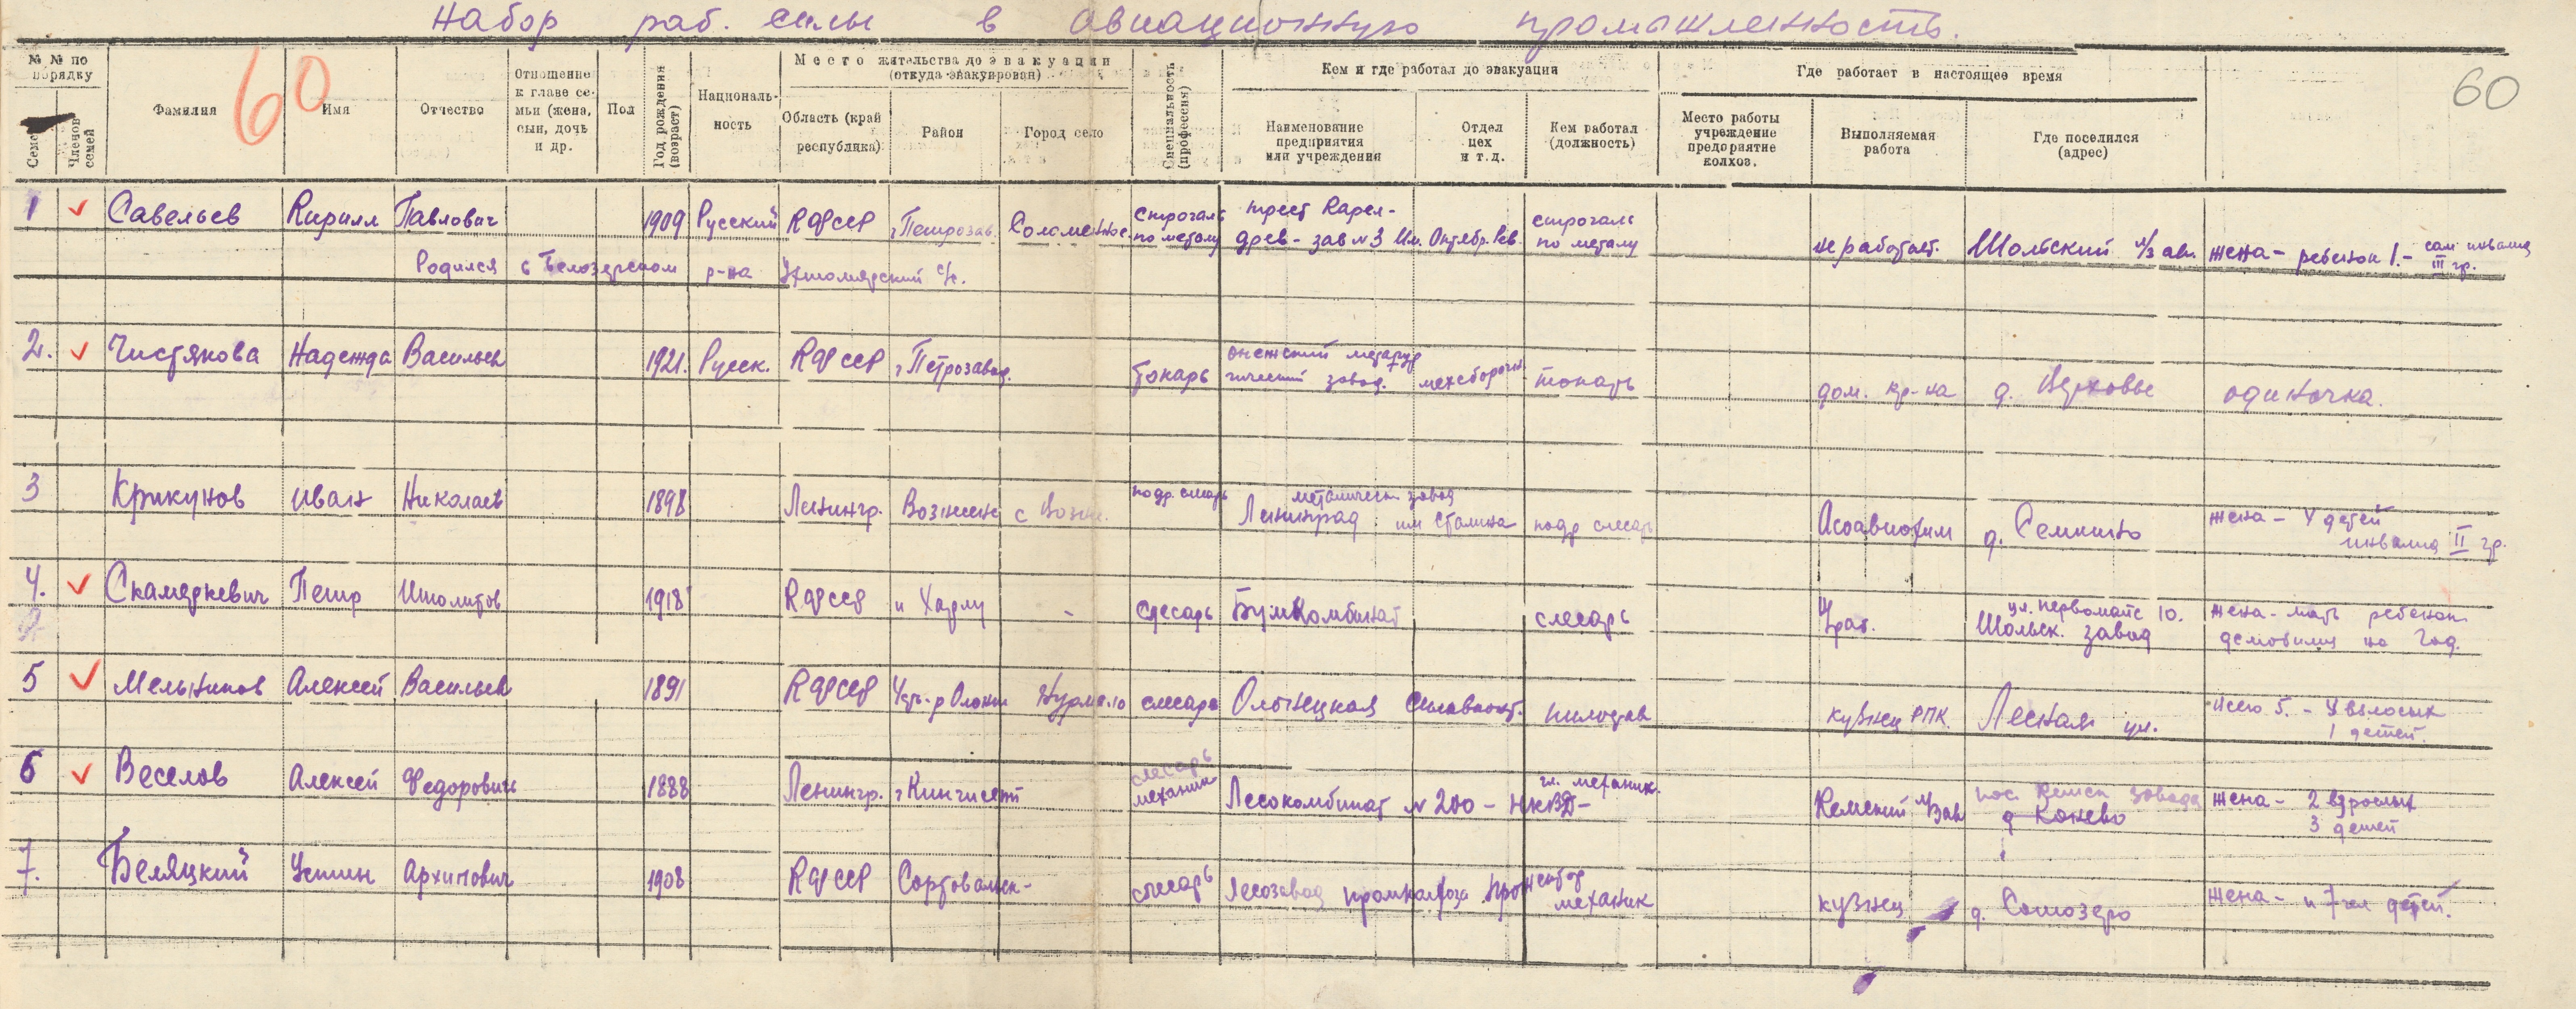 Набор раб. силы в авиационную промышленность.
60
60
№ № по порядку
Семей
Членов семей
Фамилия
Имя
Отчество
Отношение к главе семьи (жена, сын, дочь и др.
Пол
Год рождения (возраст)
Национальность
Место жительства до эвакуации (откуда эвакуирован)
Область (край республика)
Район
Город село
Специальность (профессия)
Кем и где работал до эвакуации
Наименование предприятия или учреждения
Отдел цех и т.д.
Кем работал (должность)
Где работает в настоящее время
Место работы учреждение предприятие колхоз.
Выполняемая работа
Где поселился (адрес)
1 Савельев Кирилл Павлович 1909 Русский КФССР г Петрозав. Соломенное строгаль по металу трест Карел-древ-зав №3 Им. Октябр. Рев. строгаль по металу не работает. Шольский л/з ав. жена - ребенок 1.- сам инвалид III гр.
Родился в Белозерском р-на
2. Чистякова Надежда Васильев 1921. Русск. КФССР г Петрозавод. токарь онежский металур гический завод. мехсборочн токарь дом. хр-ка д. Верховье одиночка.
3 Крикунов Иван Николаев 1898 Ленингр. Вознесен с Возн. подр. слесарь Ленинград металическ завод им Сталина подр слесар Асоавиохим д. Семкино жена - 4 детей инвалид II гр.
4. Скамеркевич Петр Иполитов 1918 КФССР - слесарь Бумкомбинат слесарь ул. Первомайс 10. Шольск. завод жена - мать ребенок демобилиз на год.
5 Мельников Алексей Васильев 1891 КФССР Нурмало слесарь Олонецкая кузнец РПК Лесная ул. Всего 5. - 4 взлослых 1 детей.
6 Веселов Алексей Федорович 1888 Ленингр. г Кингисепп слесарь механик Лесокомбинат № 200 - НКВД - гл. механик. Кемский л/зав пос. Кемск завода д Конево жена - 2 взрослых 3 детей
7. Беляцкий Устин Архипович 1908 КФССР Сортовальск- слесарь Лесозавод механик кузнец д. Сотозеро жена - и 7 чел детей.